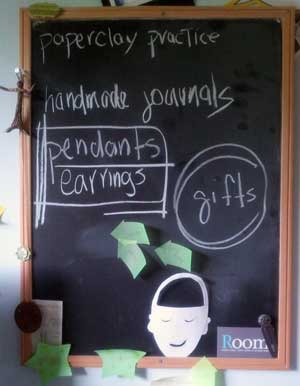 paperclay practice
handmade journals
pendants
earrings
gifts
Room